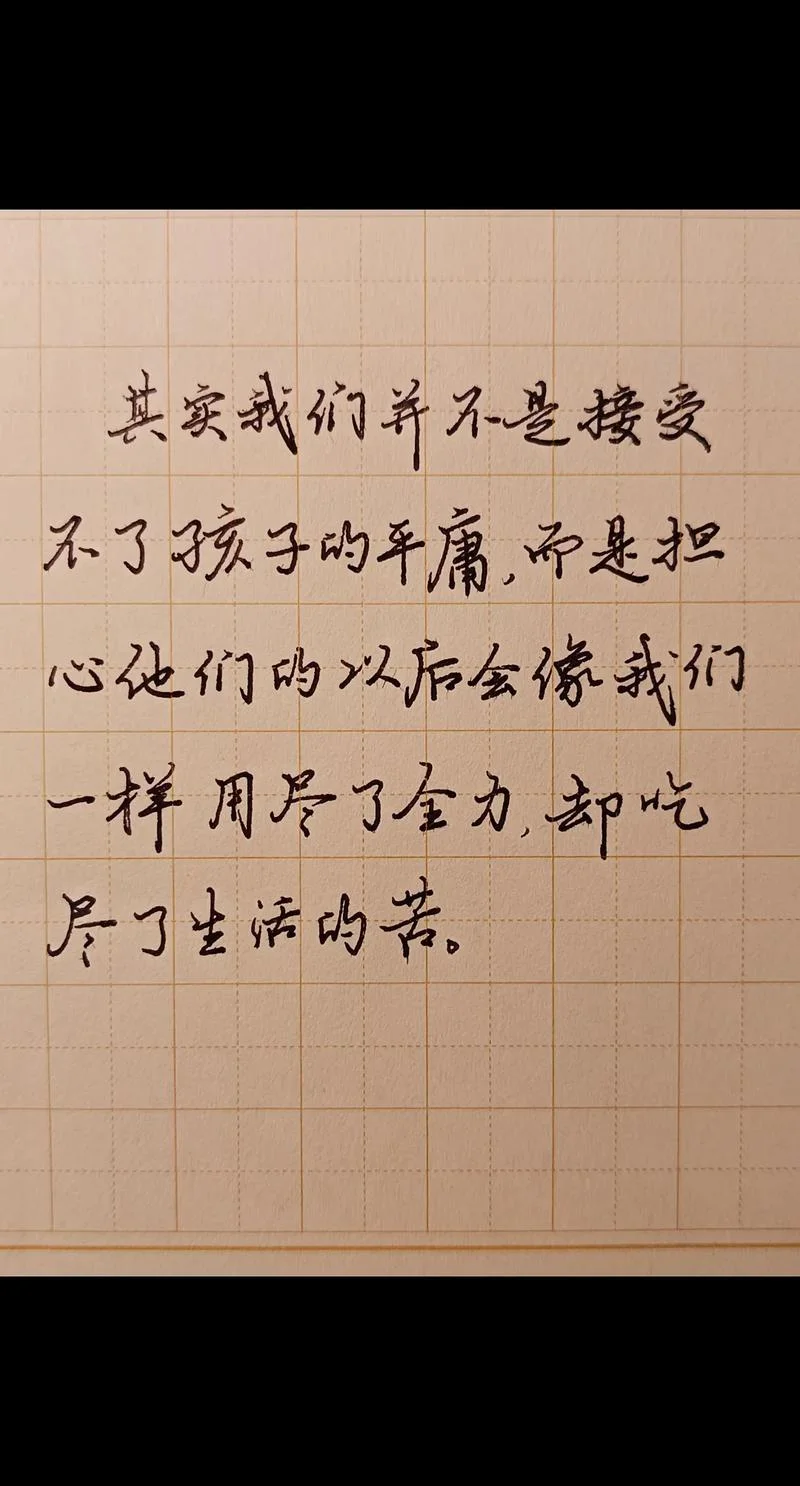 其实我们并不是接受
不了孩子的平庸,而是担
心他们的以后会像我们
一样 用尽了全力,却吃
尽了生活的苦。